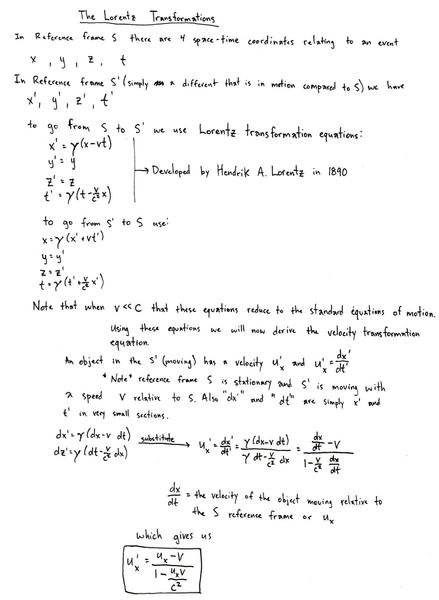 The Lorentz Transformations
In Reference frame S there are 4 space-time coordinates relating to an event
x , y , z , t
In Reference frame S' (simply a different that is in motion compared to S) we have
x' , y' , z' , t'
to go from S to S' we use Lorentz transformation equations:
x' = γ(x-vt)
y' = y
z' = z
t' = γ(t - v/c² x)
→ Developed by Hendrik A. Lorentz in 1890
to go from S' to S use:
x = γ(x' + vt')
y = y'
z = z'
t = γ(t' + v/c² x')
Note that when V << C that these equations reduce to the standard equations of motion.
Using these equations we will now derive the velocity transformation
equation.
An object in the S' (moving) has a velocity u'ₓ and u'ₓ = dx'/dt'
* Note * reference frame S is stationary and S' is moving with
a speed V relative to S. Also "dx'" and "dt'" are simply x' and
t' in very small sections.
dx' = γ(dx - v dt)
dz' = γ(dt - v/c² dx)
substitute → uₓ' = dx'/dt' = γ(dx - v dt)/γ dt - v/c² dx = (dx/dt - V)/(1 - v/c² dx/dt)
dx/dt = the velocity of the object moving relative to
the S reference frame or uₓ
which gives us
uₓ' = (uₓ - V)/(1 - uₓV/c²)